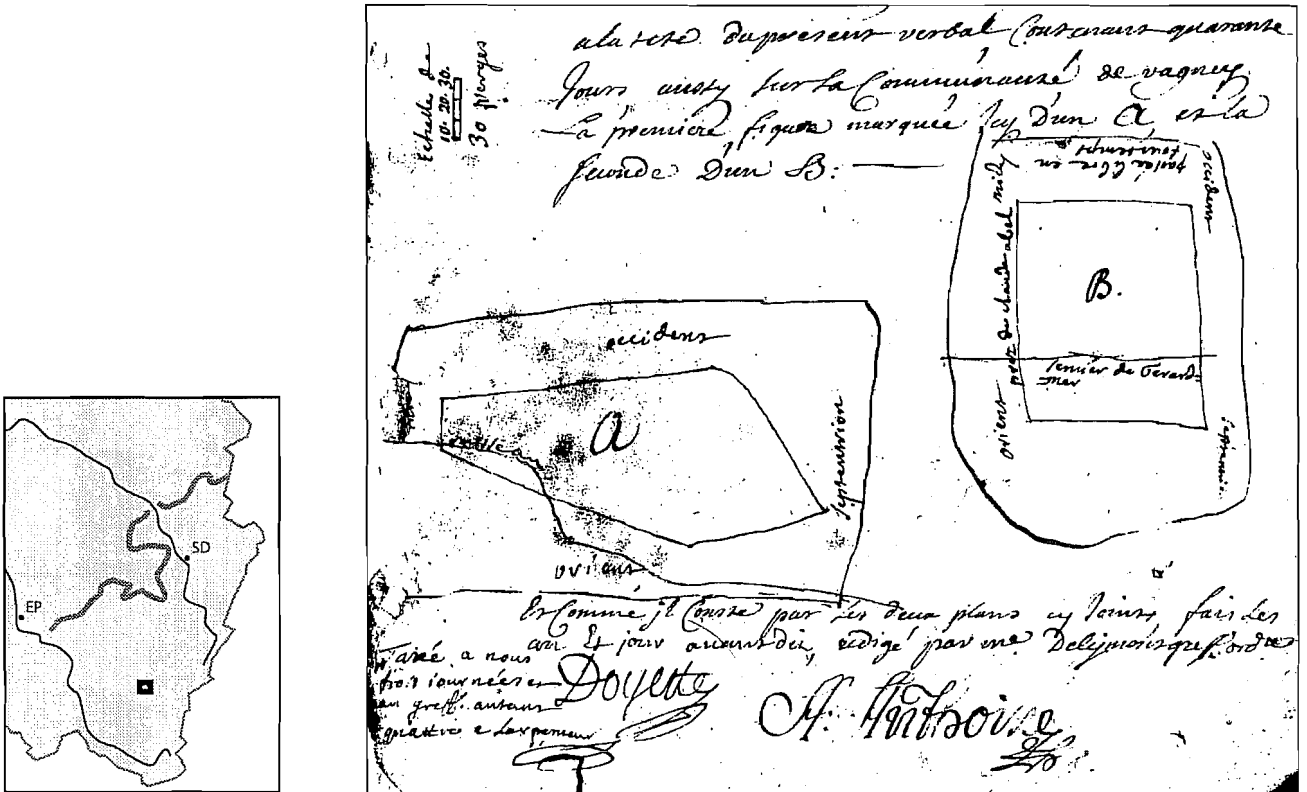 SD
EP
Echelle de
10. 20. 30.
30 Verges
a la teste du present verbal Contenant quarante
Jours aussy sur la Communauté de vagney
La premiere figure marquée Icy D'un A et la
seconde D'un B:
occident
A
septentrion
orient
occident
B.
orient
prez du chaud
sentier de Gerard-
mer
septentrion
Et Comme jl Conste par les deux plans cy Joints, fait Les
an Et jour avant dit, redigé par me
a nous
trois journées
au greff. autant
quattre a Larpenteur
Doyette
A. Anthoine